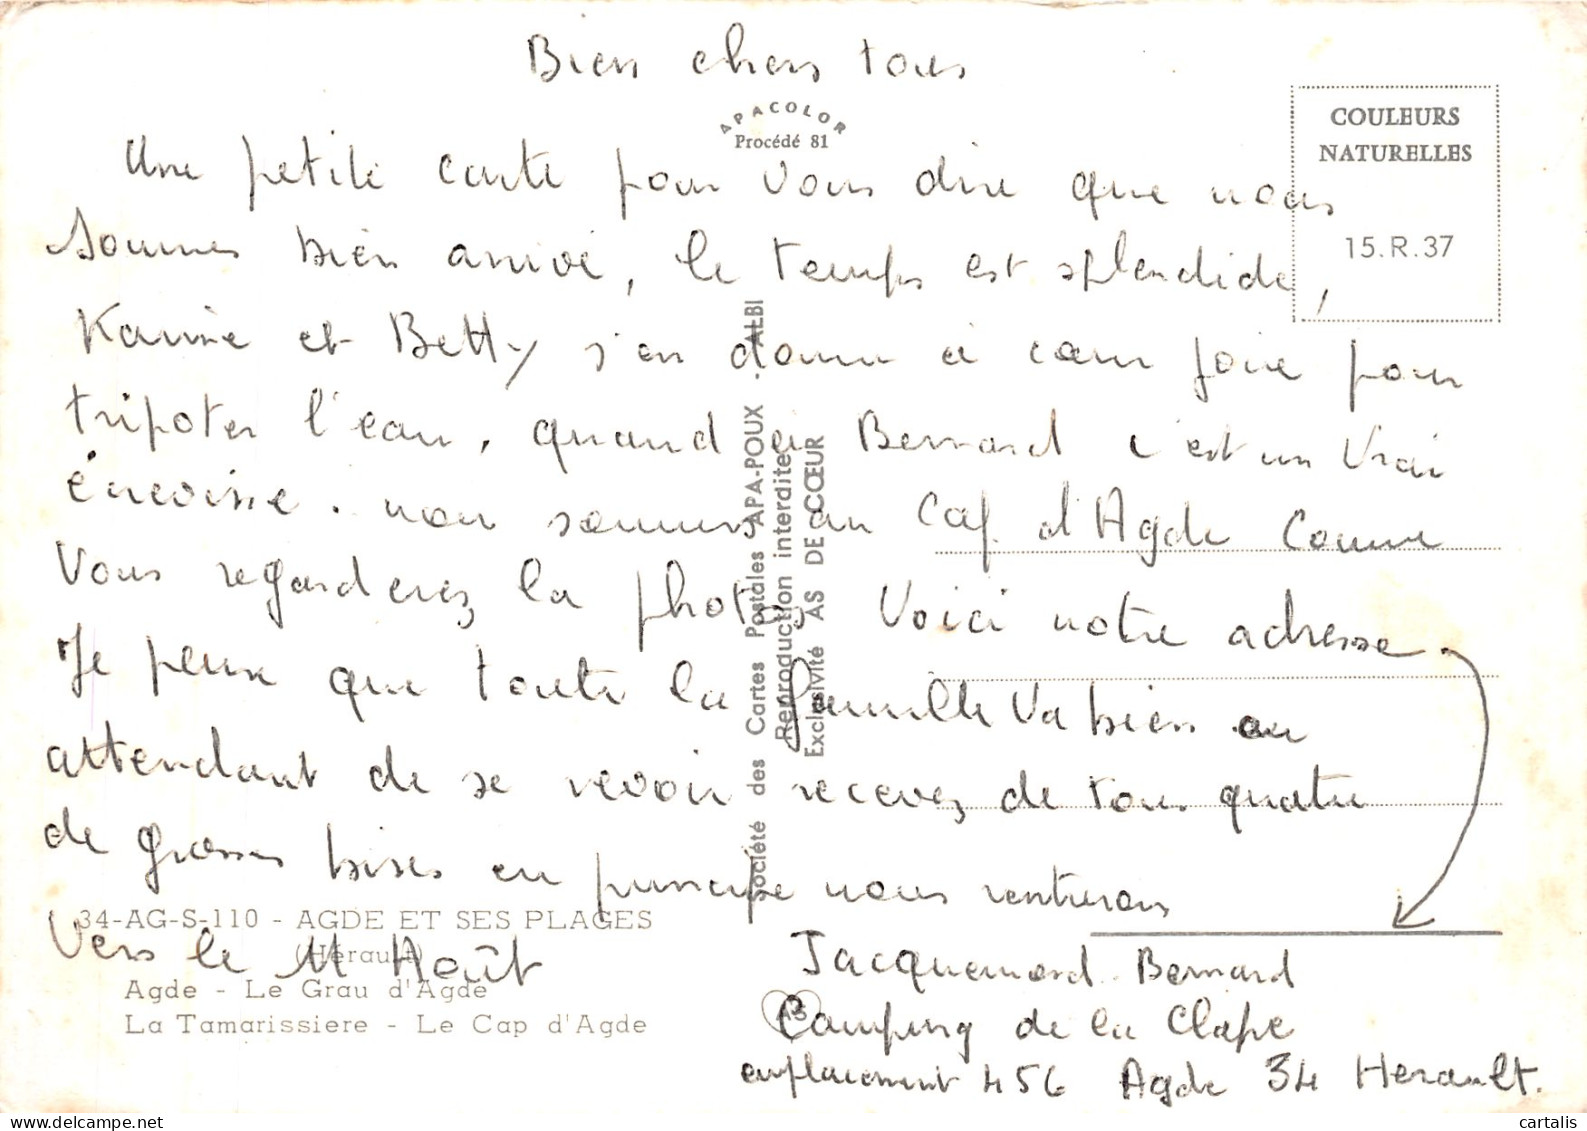 Bien chers tous
APACOLOR
Procédé 81
COULEURS
NATURELLES
15.R.37
Une petite carte pour vous dire que nous
sommes bien arrivé, le temps est splendide,
Karine et Betty s'en donne à cœur joie pour
tripoter l'eau, quand a Bernard c'est un vrai
écrevisse. nous sommes au Cap d'Agde comme
vous regarderez la photos, voici notre adresse
Je pense que toute la famille va bien en
attendant de se revoir recevez de tous quatre
de grosses bises en principe nous rentrerons
vers le 11 Août
Société des Cartes Postales APA-POUX - ALBI
Reproduction interdite
Exclusivité AS DE CŒUR
34-AG-S-110 - AGDE ET SES PLAGES
(Hérault)
Agde - Le Grau d'Agde
La Tamarissiere - Le Cap d'Agde
Jacquemard Bernard
Camping de la Clape
emplacement 456 Agde 34 Herault.
cartalis